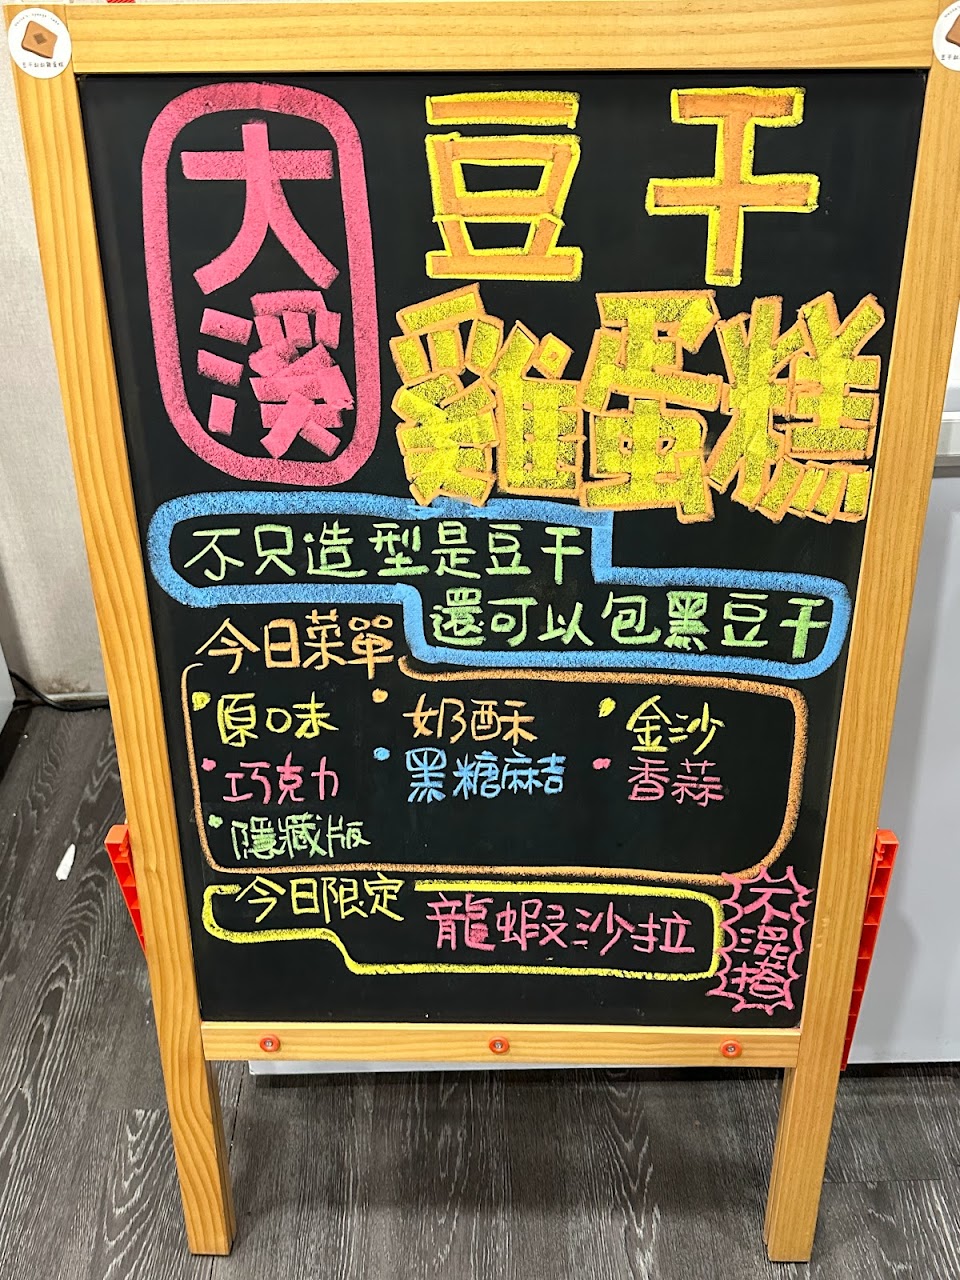 大溪
豆干
雞蛋糕
不只造型是豆干
還可以包黑豆干
今日菜單
• 原味 • 奶酥 • 金沙
• 巧克力 • 黑糖麻吉 • 香蒜
• 隱藏版
今日限定
龍蝦沙拉
不混搭